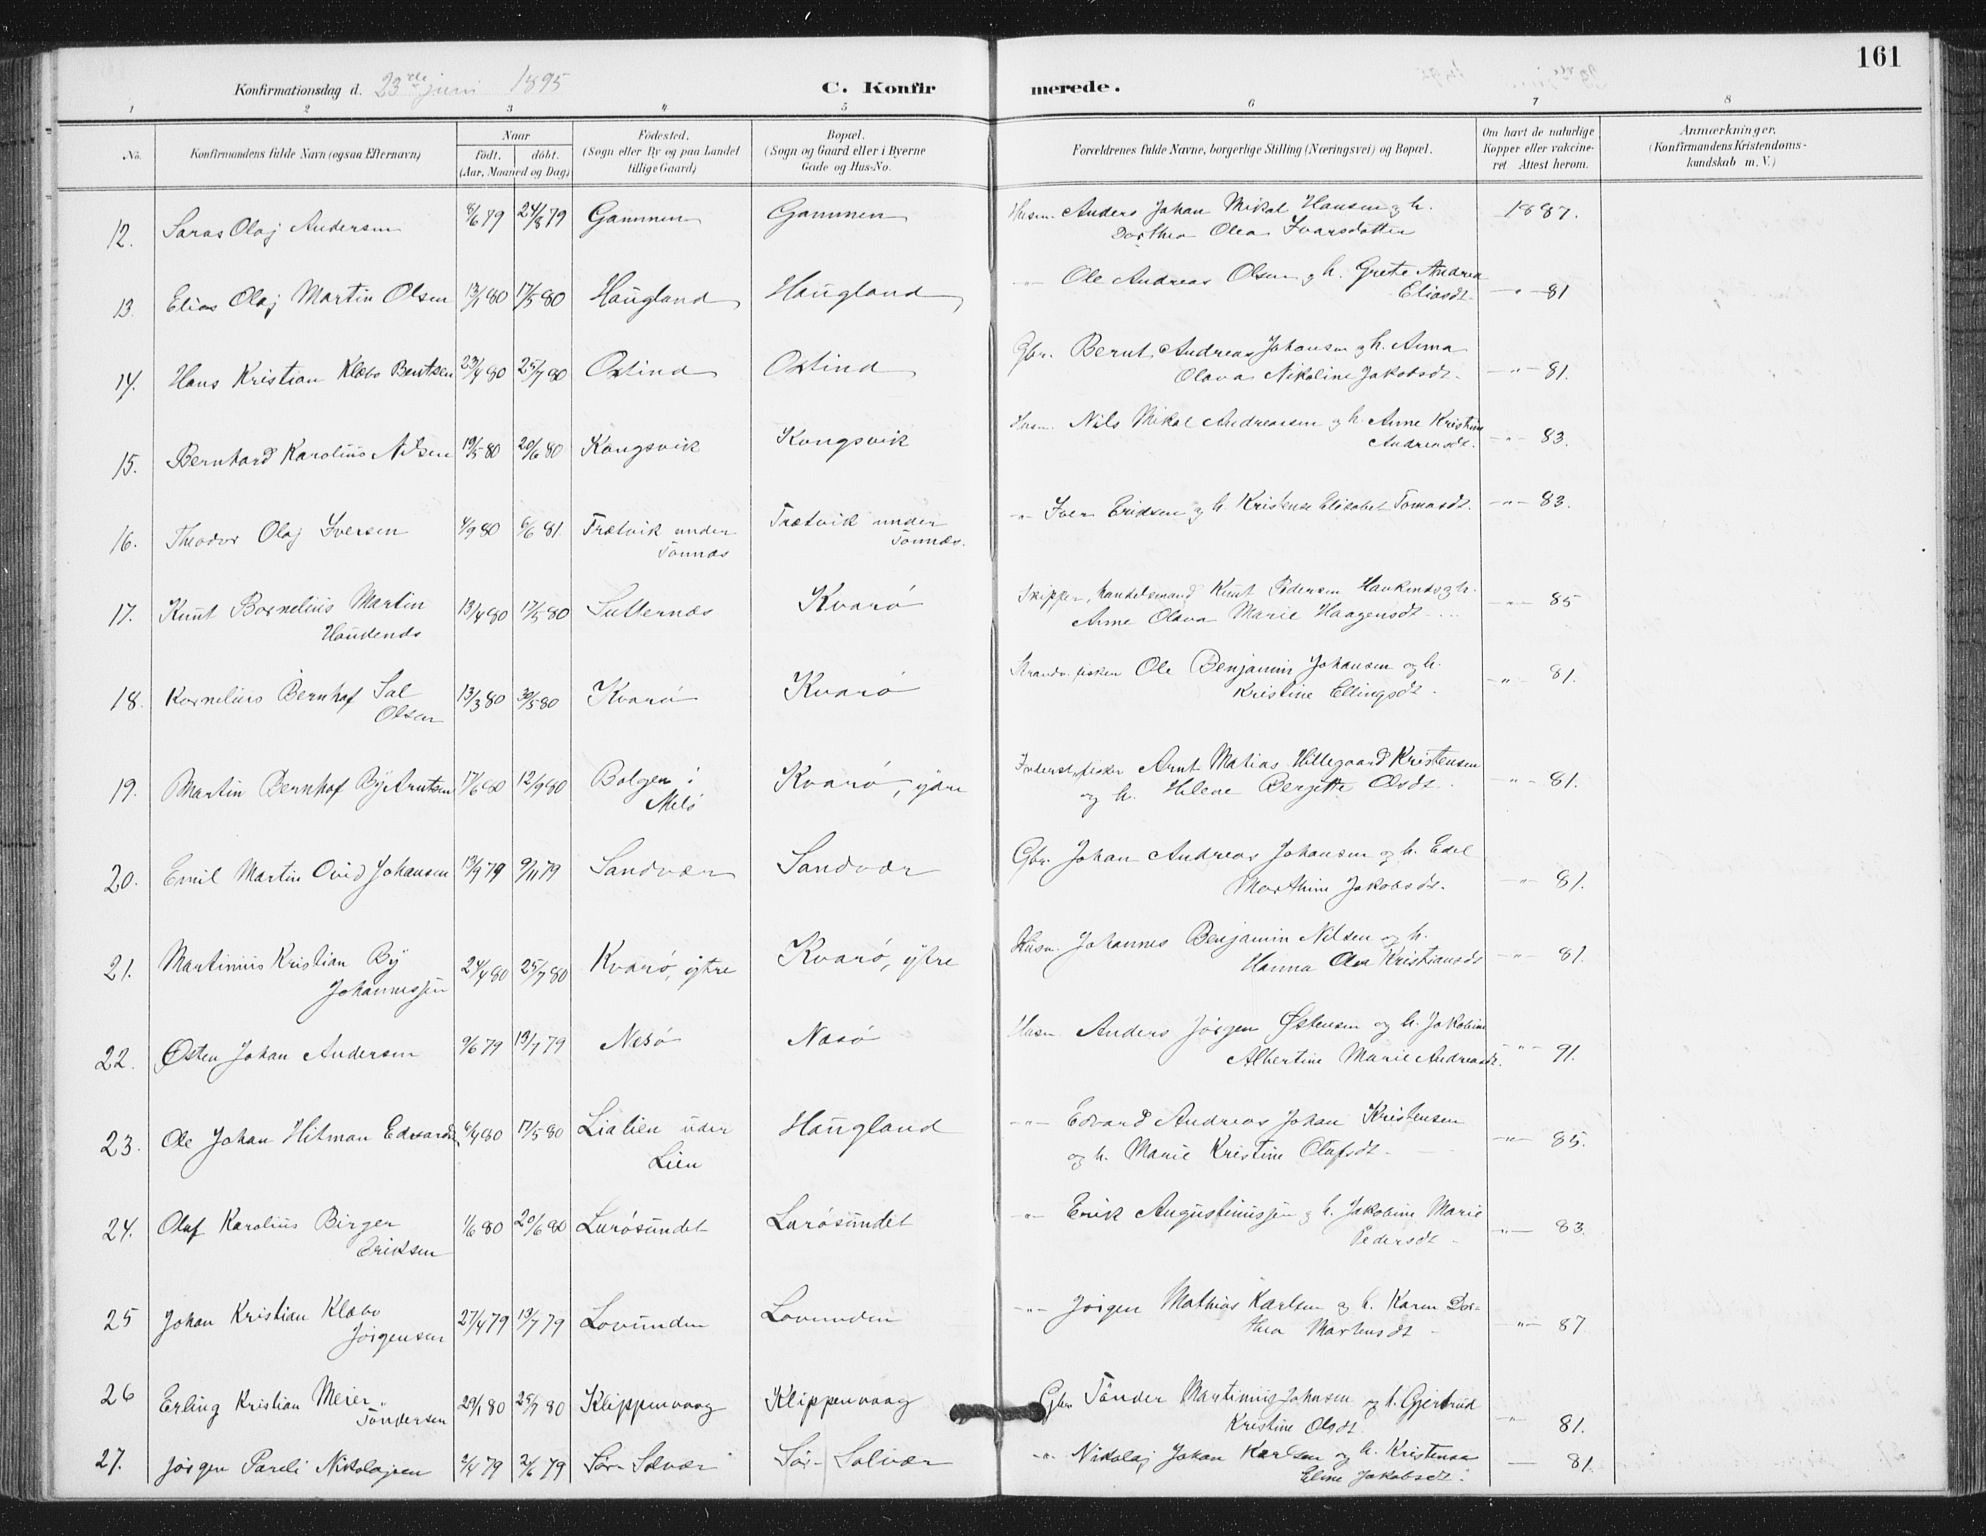 161
Konfirmationsdag d. 23de juni 1895 C. Konfirmerede.
1 2 3 4 5 6 7 8
No. Konfirmandens fulde Navn (ogsaa Efternavn) Naar født. døbt. (Aar, Maaned og Dag) Fødested. (Sogn eller By og paa Landet tillige Gaard) Bopæl. (Sogn og Gaard eller i Byerne Gade og Hus-No. Forældrenes fulde Navne, borgerlige Stilling (Næringsvei) og Bopæl. Om havt de naturlige Kopper eller vakcineret Attest herom. Anmærkninger, (Konfirmandens Kristendomskundskab m. V.)
12. Saras Olaj Andersen 8/6 79 24/8 79 Gammen Gammen Husm. Anders Johan Mikal Hansen og h. 1887.
Dorthea Olea Ivarsdatter
13. Elias Olaj Martin Olsen 13/1 80 17/5 80 Haugland Haugland -"- Ole Andreas Olsen og h. Grete Andrea
Eliasdt. -"- 81
14. Hans Kristian Klæbo Berntsen 23/4 80 25/7 80 Oxtind Oxtind Gbr. Bernt Andreas Johansen og h. Anna
Olava Nikoline Jakobsdt. -"- 81.
15. Bernhard Karolius Nilsen 19/5 80 20/6 80 Kongsvik Kongsvik Husm. Nils Mikal Andreassen og h. Anne Kristine
Andreasdt. -"- 83.
16. Theodor Olaj Iversen 4/9 80 6/6 81. Trætvik under Trætvik under " Iver Eriksen og h. Kristense Elisabet Tomasdt. -"- 83.
Tonnes Tonnes.
17. Knut Bornelius Martin 13/4 80 17/5 80 Sutternæs Kvarø Skipper, handelsmand Knut Pedersen og h. -"- 85
Anne Olava Marie Haagensdt
18. Kornelius Bernhof Sal 13/3 80 30/5 80 Kvarø Kvarø Ole Benjamin Johansen og h.
Olsen Kristine Ellingsdt. -"- 81.
19. Martin Bernhof By Arntsen 17/6 80 12/9 80 Bolgen i Kvarø, ydre fisker Arnt Matias Hillegaard Kristensen
Melø og h. Helene Bergitte Olsdt. -"- 81.
20. Emil Martin Ovid Johansen 13/9 79 9/11 79 Sandvær Sandvær Gbr. Johan Andreas Johansen og h. Edel
Marthine Jakobsdt. -"- 81.
21. Martinus Kristian By 24/4 80 25/7 80 Kvarø, ytre Kvarø, ytre Husm. Johannes Benjamin Nilsen og h.
Johannesjen Hanna Olea Kristiansdt -"- 81.
22. Østen Johan Andersen 9/6 79 13/7 79 Nesø Næsø Husm Anders Jørgen Østensen og h. Jakobine
Albertine Marie Andreasdt. -"- 91.
23. Ole Johan Hitman Edvardsen 6/4 80 17/5 80 Lialien under Haugland -"- Edvard Andreas Johan Kristensen
Lien og h. Marie Kristine Olufsdt. -"- 85.
24. Oluf Karolius Birger 1/6 80 20/6 80 Lurøsundet Lurøsundet -"- Erik Augustinussen og h. Jakobine Marie
Eriksen Pedersdt -"- 83.
25 Johan Kristian Klæbo 27/4 79 13/7 79 Lovunden Lovunden -"- Jørgen Mathias Karlsen og h. Karen Dor-
Jørgensen thea Martensdt -"- 87.
26 Erling Kristian Meier 29/1 80 25/7 80 Klippenvaag Klippenvaag Gbr. Tønder Martinus Johnsen og h. Gjertrud
Tøndersen Kristine Olsdt. " 81.
27. Jørgen Pareli Nikolajsen 2/4 79 2/6 79 Sør-Solvær Sør-Solvær -"- Nikolaj Johan Karlsen og h. Kristensa
Eline Jakobsdt. — 81.